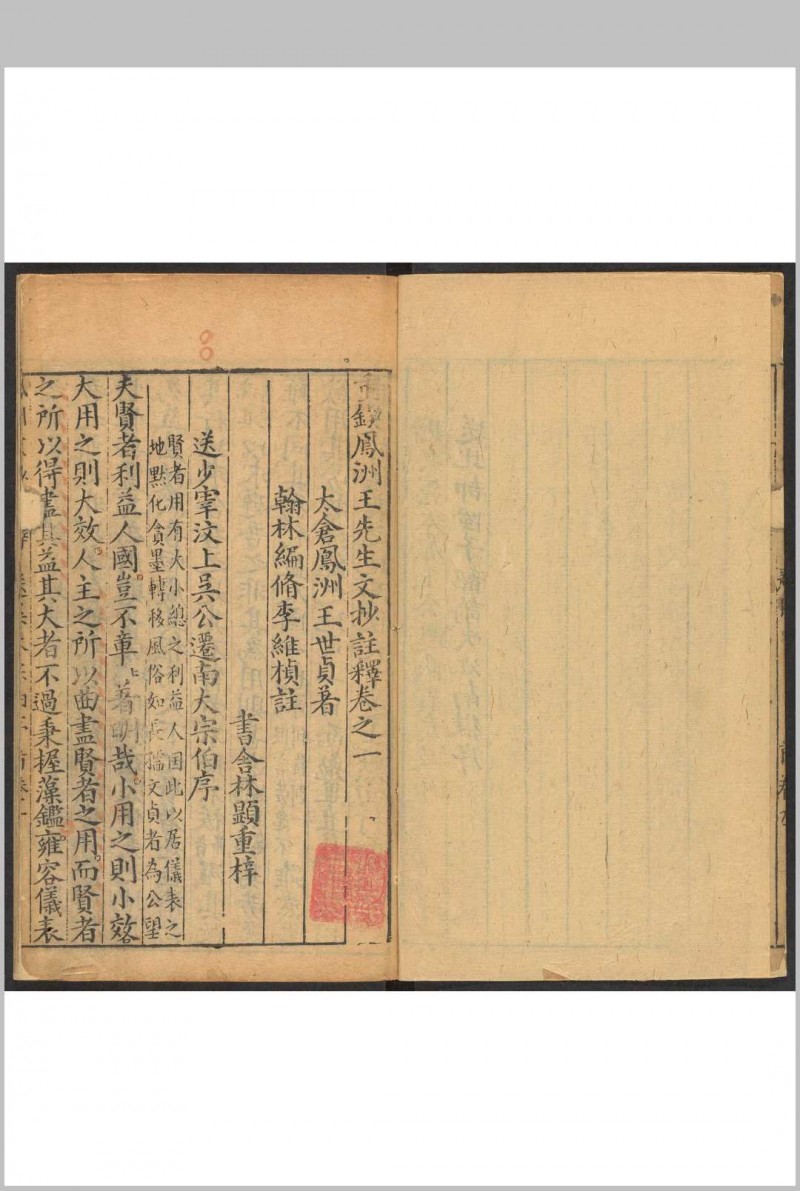 重鐫鳳洲王先生文抄註釋卷之一
太倉鳳洲王世貞著
翰林編脩李維楨註
書舎林顯重梓
送少宰汶上吳公遷南大宗伯序
賢者用有大小總之利益人国此以居儀表之
地黙化貪墨轉移風俗如長孺文貞者為公望
夫賢者利益人國豈不章章著明哉小用之則小效
大用之則大效人主之所以曲盡賢者之用而賢者
之所以得盡其益其大者不過秉握藻鑑雍容儀表